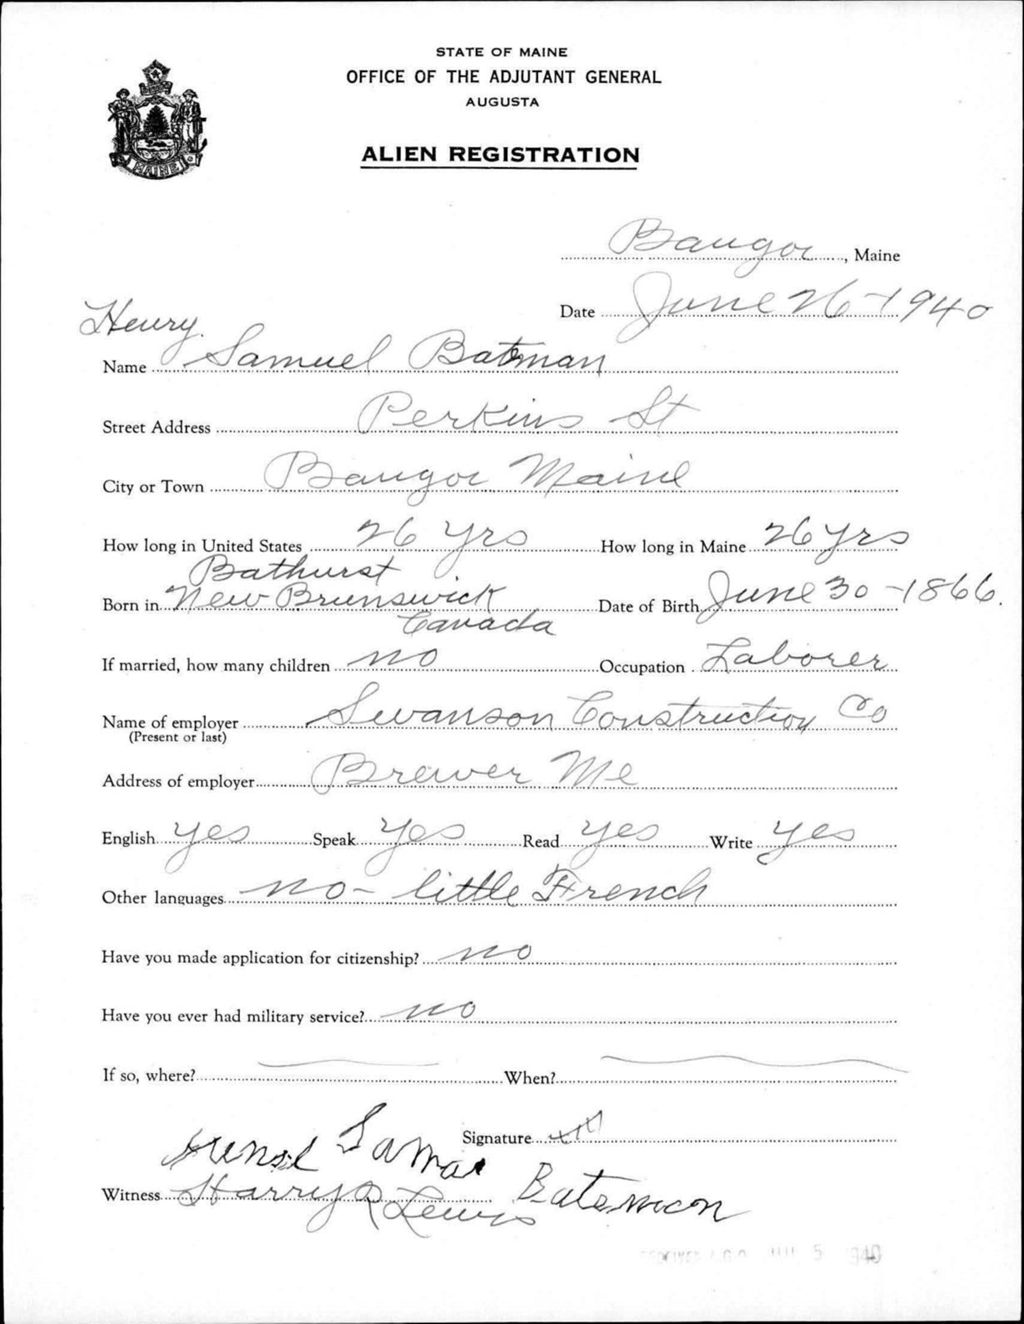 STATE OF MAINE
OFFICE OF THE ADJUTANT GENERAL
AUGUSTA
MAINE
ALIEN REGISTRATION
Bangor, Maine
Date June 26-1940
Henry
Name Samuel Bateman
Street Address Perkins St
City or Town Bangor Maine
How long in United States 26 yrs How long in Maine 26 yrs
Bathurst
Born in New Brunswick Date of Birth June 30-1866.
Canada
If married, how many children no Occupation Laborer
Name of employer Swanson Construction Co
(Present or last)
Address of employer Brewer Me
English yes Speak yes Read yes Write yes
Other languages no - little French
Have you made application for citizenship? no
Have you ever had military service? no
If so, where? When?
Signature
Batemon
Witness Harry Lewis
5 1940